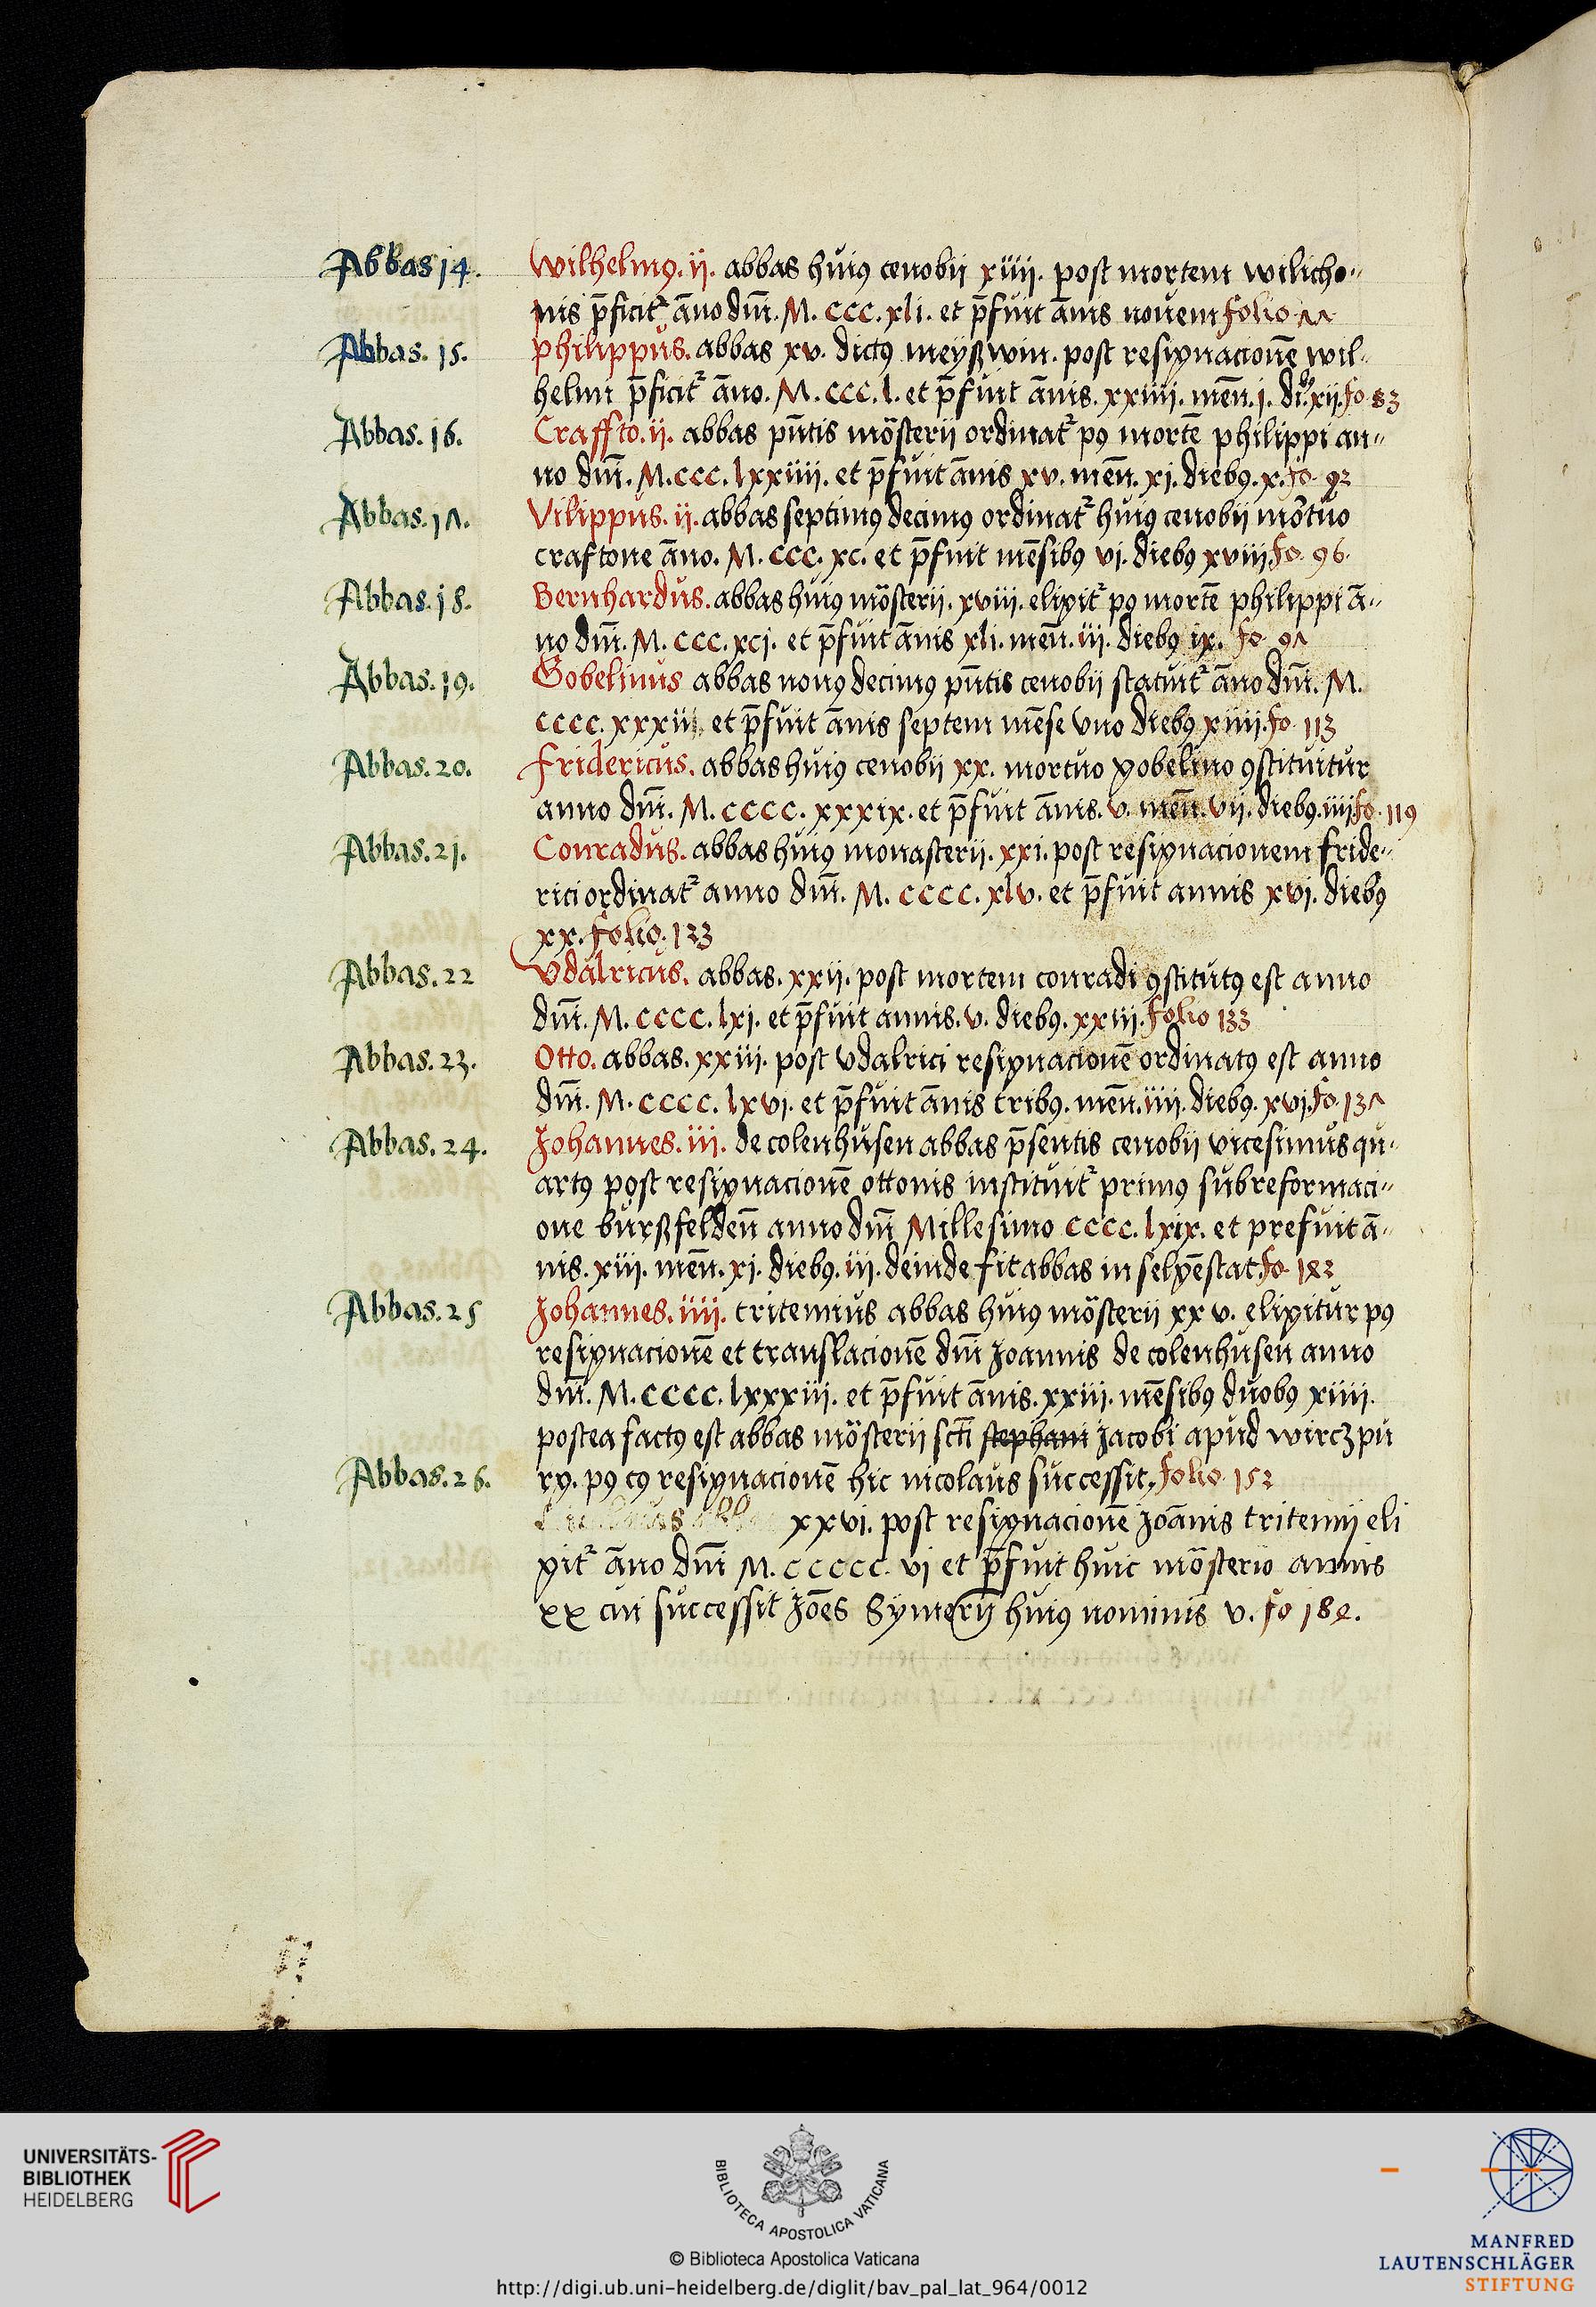 Abbas 14. Wilhelmꝰ. ij. abbas huiꝰ cenobij xiiij. post mortem wilicho-
nis p̄ficit᷑ āno dnī. M. ccc. xli. et p̄fuit ānis nouem folio 77
Abbas. 15. Philippus. abbas xv. dictꝰ meyßwin. post resignacionē wil-
helmi p̄ficit᷑ āno. M. ccc. l. et p̄fuit ānis. xxiiij. menͫ. j. di. xij. fo 83
Abbas. 16. Craffto. ij. abbas pn̄tis mōsterij ordinat᷑ pꝰ mortē philippi an-
no dnī. M. ccc. lxxiiij. et p̄fuit ānis xv. men̄. xj. diebꝰ. x. fo. 92
Abbas. 17. Vilippus. ij. abbas septimꝰ decimꝰ ordinat᷑ huiꝰ cenobij mōtuo
craftone āno. M. ccc. xc. et p̄fuit mēsibꝰ vj. diebꝰ xviij. fo. 96.
Abbas. 18. Bernhardus. abbas huiꝰ mōsterij. xviij. eligit᷑ pꝰ mortē philippi ā-
no dnī. M. ccc. xcj. et p̄fuit ānis xli. men̄. iij. diebꝰ ix. fo 97
Abbas. 19. Gobelinus abbas nonꝰ decimꝰ pn̄tis cenobij statuit᷑ āno dnī. M.
cccc. xxxii et p̄fuit ānis septem mēse vno diebꝰ xiiij. fo. 113
Abbas. 20. Fridericus. abbas huiꝰ cenobij xx. mortuo gobelino ꝯstituitur
anno dnī. M. cccc. xxxix. et p̄fuit ānis. v. men̄. vij. diebꝰ. iiij. fo. 119
Abbas. 21. Conradus. abbas huiꝰ monasterij. xxi. post resignacionem fride-
rici ordinat᷑ anno dnī. M. cccc. xlv. et p̄fuit annis xvj. diebꝰ
xx. folio. 123
Abbas. 22 Vdalricus. abbas. xxij. post mortem conradi ꝯstitutꝰ est anno
dnī. M. cccc. lxj. et p̄fuit annis. v. diebꝰ. xxiij. folio 133
Abbas. 23. Otto. abbas. xxiij. post vdalrici resignacionē ordinatꝰ est anno
dnī. M. cccc. lxvj. et p̄fuit ānis tribꝰ. men̄. iiij. diebꝰ. xvj. fo. 137
Abbas. 24. Johannes. iij. de colenhusen abbas p̄sentis cenobij vicesimus qu-
artꝰ post resignacionē ottonis instituit᷑ primꝰ sub reformaci-
one burßfelden̄ anno dnī Millesimo cccc. lxix. et prefuit ā-
nis. xiij. men̄. xj. diebꝰ. iij. deinde fit abbas in selgēstat. fo. 142
Abbas. 25 Johannes. iiij. tritemius abbas huiꝰ mōsterij xxv. eligitur pꝰ
resignacionē et translacionē dnī Joannis de colenhusen anno
dnī. M. cccc. lxxxiij. et p̄fuit ānis. xxiij. mēsibꝰ duobꝰ xiiij.
postea factꝰ est abbas mōsterij sctī stephani Jacobi apud wirczpu
Abbas. 26. rg. pꝰ cꝰ resignacionē hic nicolaus successit, folio 152
xxvi. post resignacionē Joānis tritemij eli
git᷑ āno dnī M. ccccc. vj et p̄fuit huic mōsterio annis
xx cui successit Joēs Symerij huiꝰ nominis v. fo 182.
UNIVERSITÄTS-
BIBLIOTHEK
HEIDELBERG
BIBLIOTECA APOSTOLICA VATICANA
© Biblioteca Apostolica Vaticana
http://digi.ub.uni-heidelberg.de/diglit/bav_pal_lat_964/0012
MANFRED
LAUTENSCHLÄGER
STIFTUNG